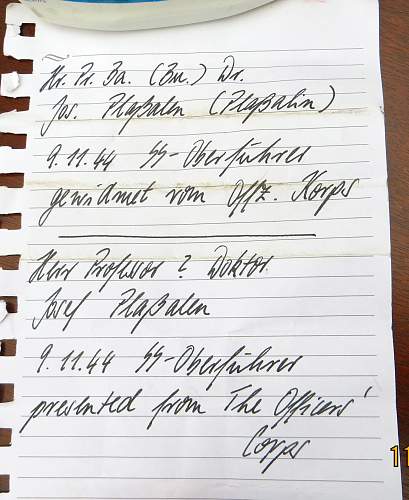 Hr. Pr. Ba. (Bu.) Dr.
Jos. Plaßalen (Plaßalin)
9.11.44 SS-Oberführer
gewidmet vom Offz. Korps
Herr Professor ? Doktor
Josef Plaßalen
9.11.44 SS-Oberführer
presented from The Officers'
Corps
11